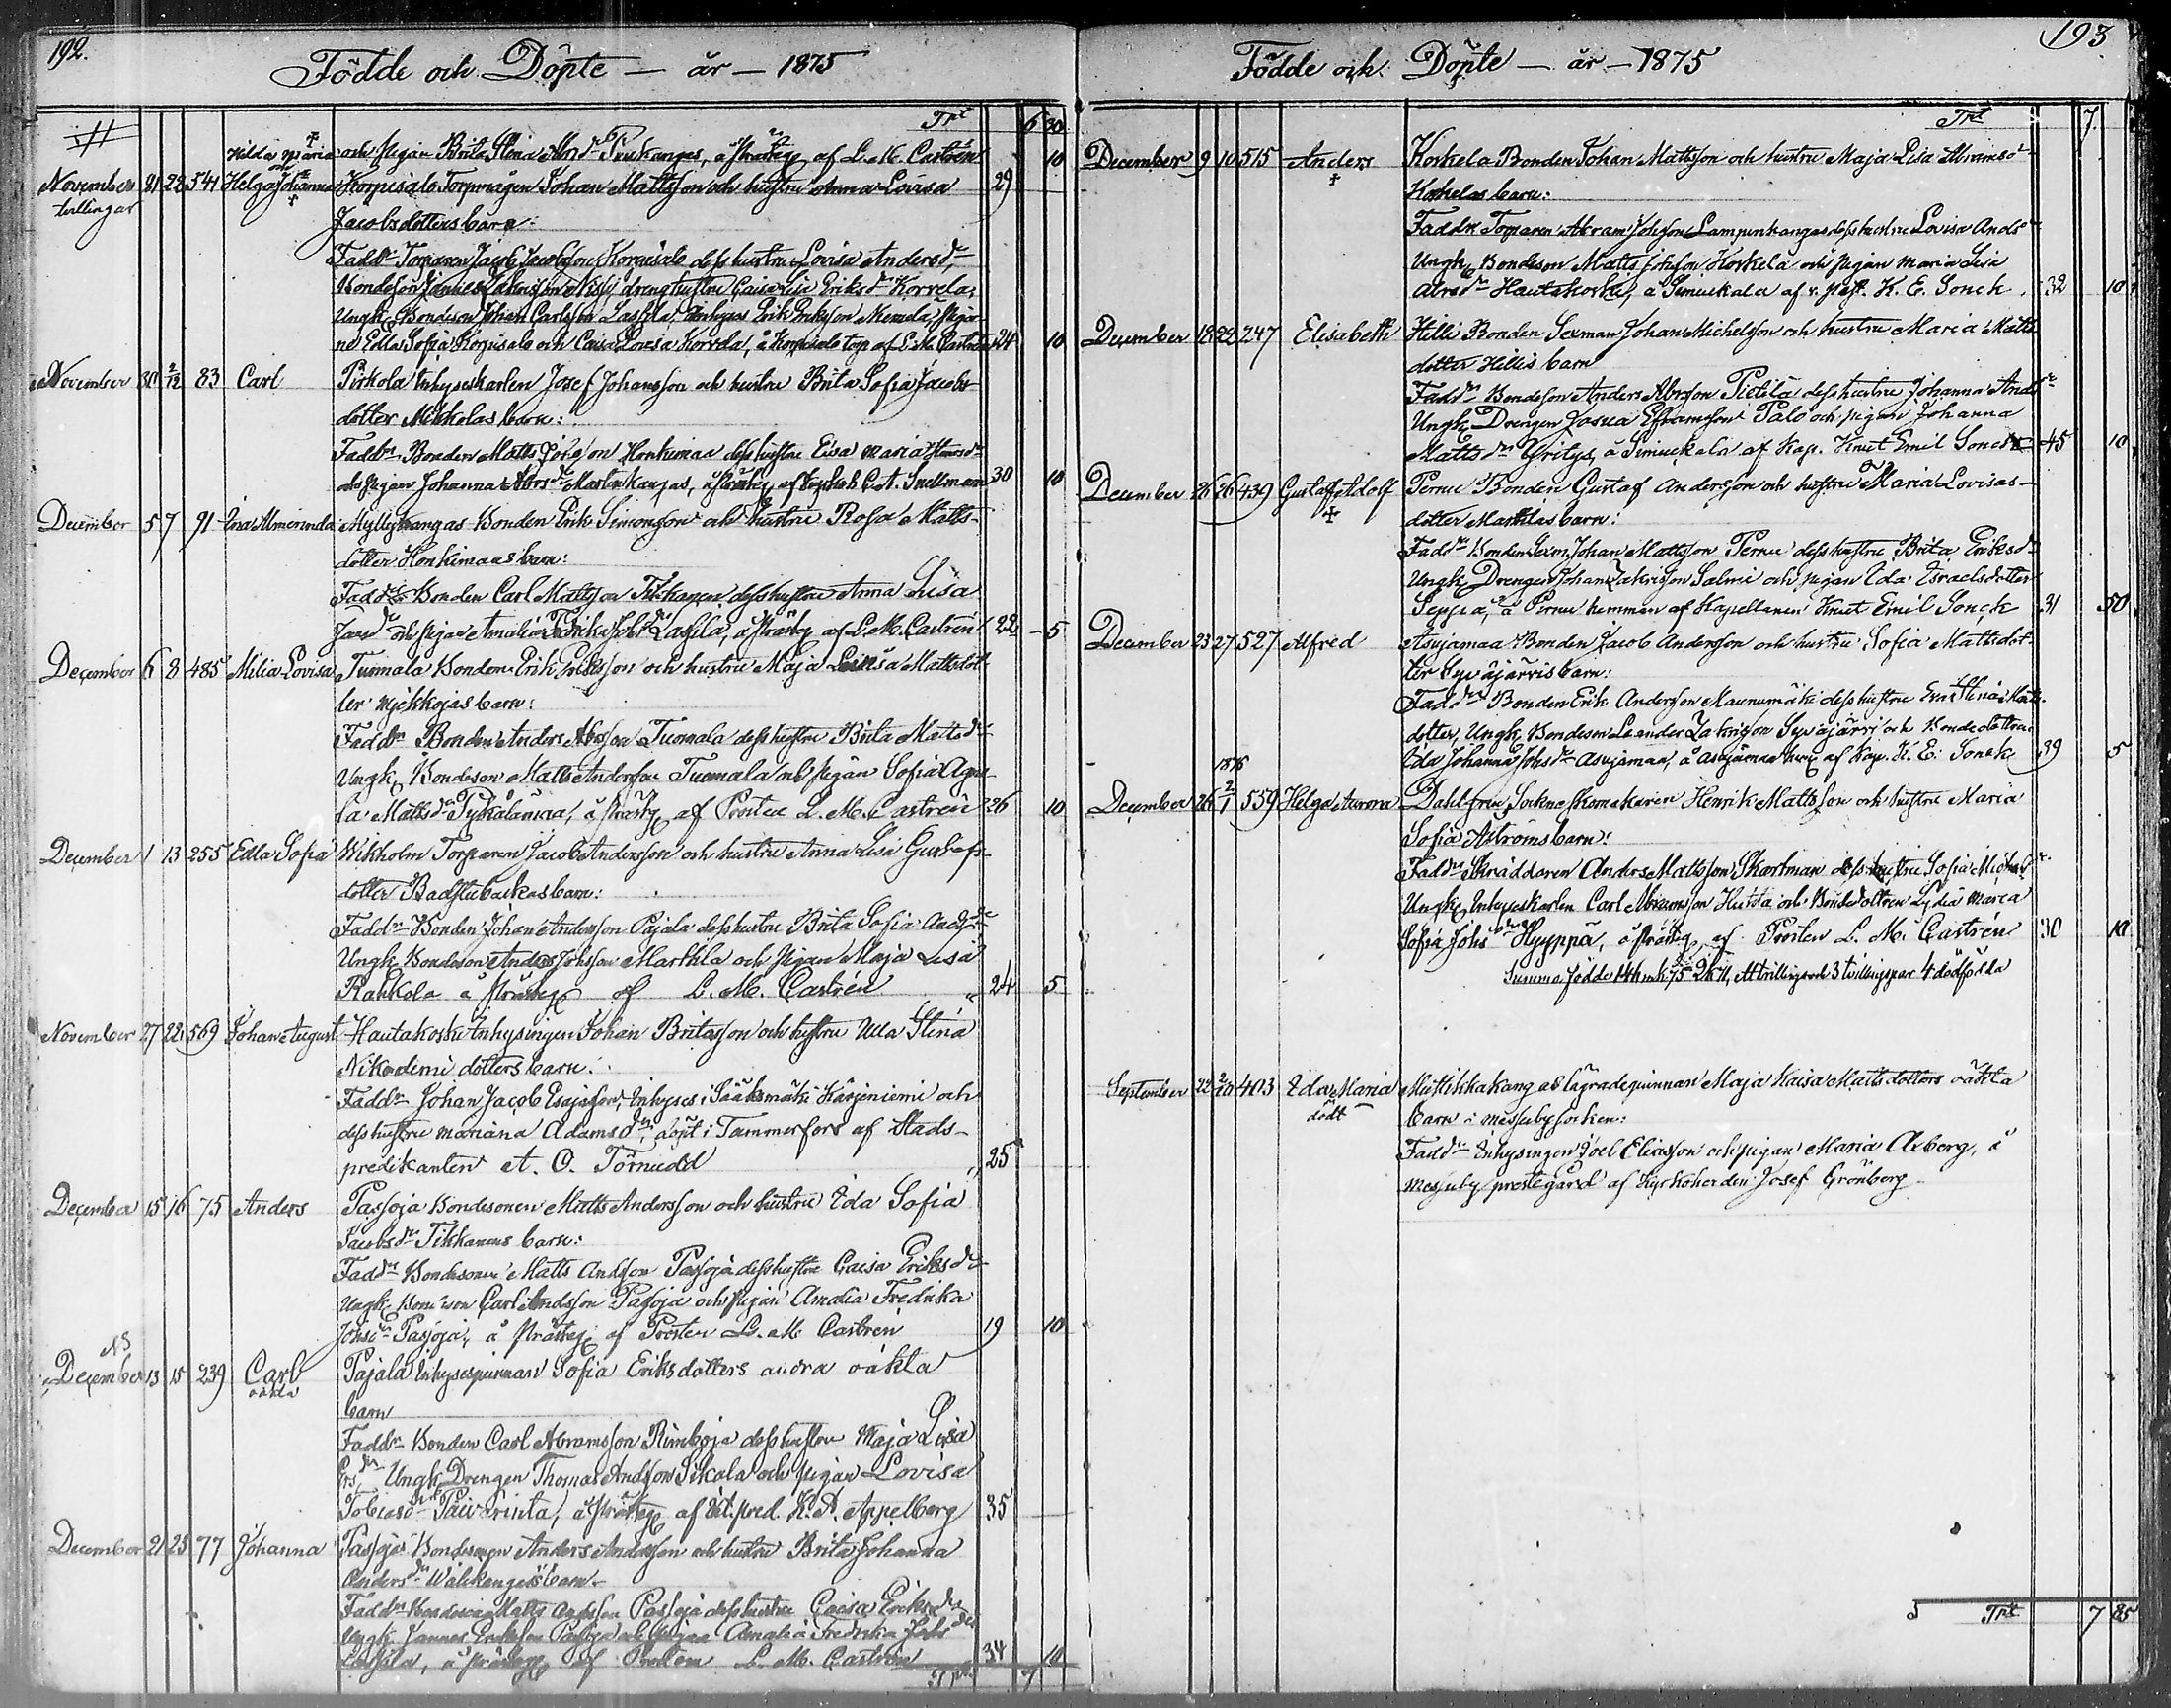 192.
Födde och Döpte — år — 1875
Trt 6 30
Hilda Maria och pigan Brita Stina Abrsdr af L. M. Castrén 10
November 21 22 541 Helga Johanna Korpisalo Torpmågen Johan Mattsson och hustru Anna Lovisa 29
tvillingar
Jacobsdotters barn:
Faddr Torparen Jacob Jacobsson Korpisalo dess hustru Lovisa Andersdr
Bondeson Eriksdr Korvela,
Ungk. Bondeson Johan Carlsson Lassila, Inhyses Erik Eriksson
Edla Sofia Korpisalo och Caisa Lovisa Korvela, å Korpisalo torp af L. M. Castrén 24 10
November 30 2/12 83 Carl Pirkola Inhyseskarlen Josef Johansson och hustru Brita Sofia Jacobs-
dotter Mikkolas barn:
Faddr Bonden Matts Honkimaa dess hustru Lisa Maria
och pigan Johanna Abrsdr Martinkangas, af C. A. Snellman 30 10
December 5 7 91 Ina Almerinda Myllykangas Bonden Erik Simonsson och hustru Rosa Matts-
dotter Honkimaas barn:
Faddr Bonden Carl Mattsson dess hustru Anna Lisa
och pigan Amalia Fredrika Johsdr Lassila, å prästg. af L. M. Castrén 22 5
December 6 8 485 Milia Lovisa Tuomala Bonden Erik Eriksson och hustru Maja Lovisa Mattsdot-
ter barn:
Faddr Bonden Anders Abrsson Tuomala dess hustru Brita Mattsdr
Ungk. Bondeson Matts Andersson Tuomala och pigan Sofia Agne-
ta Mattsdr å prästg. af Prosten L. M. Castrén 26 10
December 1 13 255 Edla Sofia Wikholm Torparen Jacob Andersson och hustru Anna Lisa Gustafs-
dotter Badstubackas barn:
Faddr Bonden Johan Andersson Pajala dess hustru Brita Sofia Andrsdr
Ungk. Bondeson Anders Johsson Markkla och Pigan Maja Lisa
Rahkola å prästg. af L. M. Castrén 24 5
November 27 22 569 Johan August Hautakoski Inhysingen Johan Britasson och hustru Ulla Stina
Nikodemi dotters barn:
Faddr Johan Jacob Esajasson, Inhyses i Sääksmäki Kärjeniemi och
dess hustru Mariana Adamsdr, döpt i Tammerfors af Stads-
predikanten A. O. Törnudd 25
December 15 16 75 Anders Passoja Bondesonen Matts Andersson och hustru Ida Sofia
Jacobsdr Tikkanens barn:
Faddr Bondesonen Matts Andsson Passoja dess hustru Caisa Eriksdr
Ungk. Bondeson Carl Andsson Passoja och Pigan Amalia Fredrika
Johsdr Passoja, å prästg. af Prosten L. M. Castrén 19 10
NB
December 13 15 239 Carl Pajala Inhysespinnan Sofia Eriksdotters andra oäkta
oäkta
barn
Faddr Bonden Carl Abramsson dess hustru Maja Lisa
Ersdr Ungk. Drengen Thomas Andsson Sikala och pigan Lovisa
Tobiasdr Päivärinta, å prästg. af Ext. pred. K. A. Appelberg 35
December 21 23 77 Johanna Passoja Bondesonen Anders Andersson och hustru Brita Johanna
Andersdr Wälikangas barn
Faddr Bondeson Matts Andsson Passoja dess hustru Caisa Eriksdr
Ungk. Jannes Eriksson Passoja och Pigan Amalia Fredrika Johsdr
Lassila, å prästg. af Prosten L. M. Castrén 34 10
Trt 7
193
Födde och Döpte — år — 1875
Trt 7
December 9 10 515 Anders Koskela Bonden Johan Mattsson och hustru Maja Lisa Abramsdr
Koskelas barn:
Faddr Torparen Abram Johsson Lampinkangas dess hustru Lovisa Andsdr
Ungk. Bondeson Matts Johsson Koskela och pigan Maria Lisa
Abrsdr Hautakoski, å Simuekala af v. past. K. E. Sonck 32 10
December 18 22 247 Elisabeth Hilli Bonden Sexman Johan Michelsson och hustru Maria Matts-
dotter Hillis barn
Faddr Bondeson Anders Abrsson Pietilä dess hustru Johanna Andsdr
Ungk. Drengen Josua Efraimsson Palo och pigan Johanna
Mattsdr Yritys, å Simuekala af Kap. Knut Emil Sonck 45 10
December 26 26 439 Gustaf Adolf Pernu Bonden Gustaf Andersson och hustru Maria Lovisas-
dotter Markklas barn:
Faddr Bonden Sexm. Johan Mattsson Pernu dess hustru Brita Eriksdr
Ungk. Drengen Johan Zakrisson Salmi och pigan Ida Israelsdotter
Seppä, å Pernu hemman af Kapellanen Knut Emil Sonck 31 50
December 23 27 527 Alfred Asujamaa Bonden Jacob Andersson och hustru Sofia Mattsdot-
ter Syväjärvis barn:
Faddr Bonden Erik Andersson Maunumäki dess hustru Eva Stina Matts-
dotter, Ungk. Bondeson Leander Zakrisson Syväjärvi och Bondedottren
Ida Johanna Johsdr Asujamaa, å Asujamaa hem. af Kap. K. E. Sonck 39 5
1876
December 26 2/1 559 Helga Aurora Dahlgren Sockneskomakaren Henrik Mattsson och hustru Maria
Sofia Åströms barn:
Faddr Skräddaren Anders Mattsson Skartman dess hustru Sofia Michelsdr
Ungk. Inhyseskarlen Carl Abramsson Huhta och Bondedottren Lydia Maria
Sofia Johsdr Hyyppä, å prästg. af Prosten L. M. Castrén 30 10
Summa födde 146 mk 75 Qk 71, 3 tvillingspar 4 dödfödda
September 22 403 Ida Maria Mutkkakangas lägradeqvinnan Maja Kaisa Mattsdotters oäkta
födt
barn i Messuby socken:
Faddr Inhysingen Joel Eliasson och pigan Maria Axberg, å
Messuby prestegård af Kyrkoherden Josef Grönberg
Trt 7 85